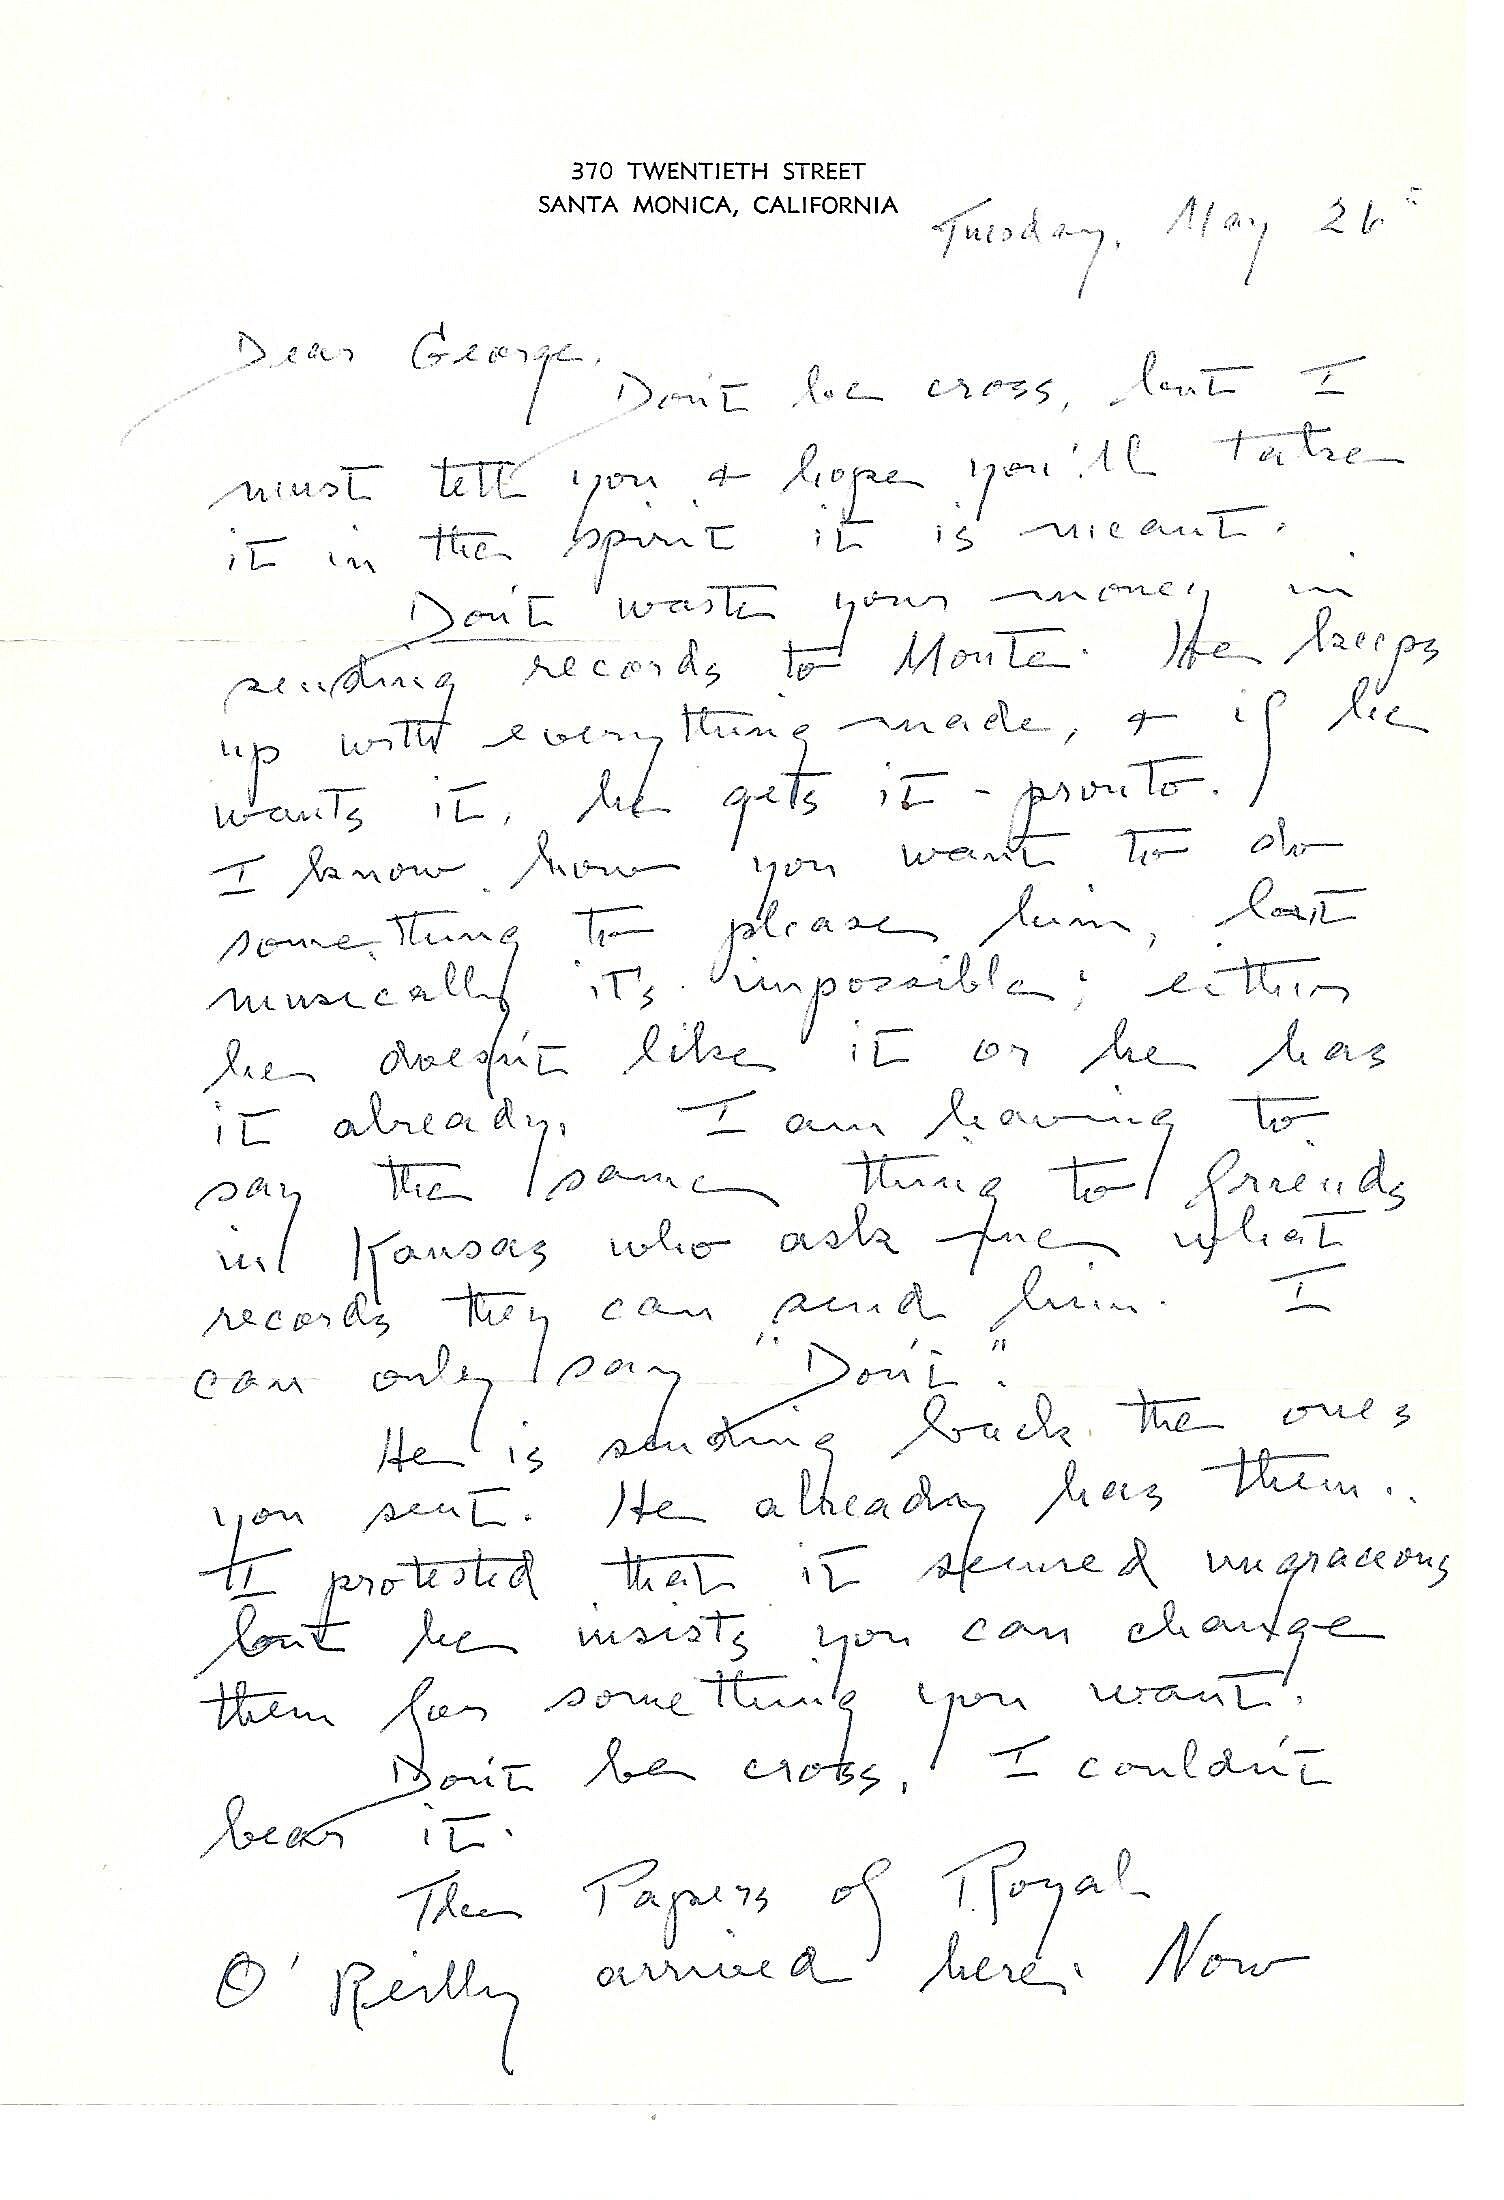 370 TWENTIETH STREET
SANTA MONICA, CALIFORNIA
Tuesday, May 26
Dear George,
Don't be cross, but I
must tell you + hope you'll take
it in the spirit it is meant.
Don't waste your money in
sending records to Monte. He keeps
up with everything made, + if he
wants it, he gets it - pronto.
I know how you want to do
something to please him, but
musically it's impossible; either
he doesn't like it or he has
it already. I am having to
say the same thing to friends
in Kansas who ask me what
records they can send him. I
can only say "Don't".
He is sending back the ones
you sent. He already has them..
I protested that it seemed ungracious
but he insists you can change
them for something you want.
Don't be cross, I couldn't
bear it.
The Papers of Royal
O'Reilly arrived here. Now